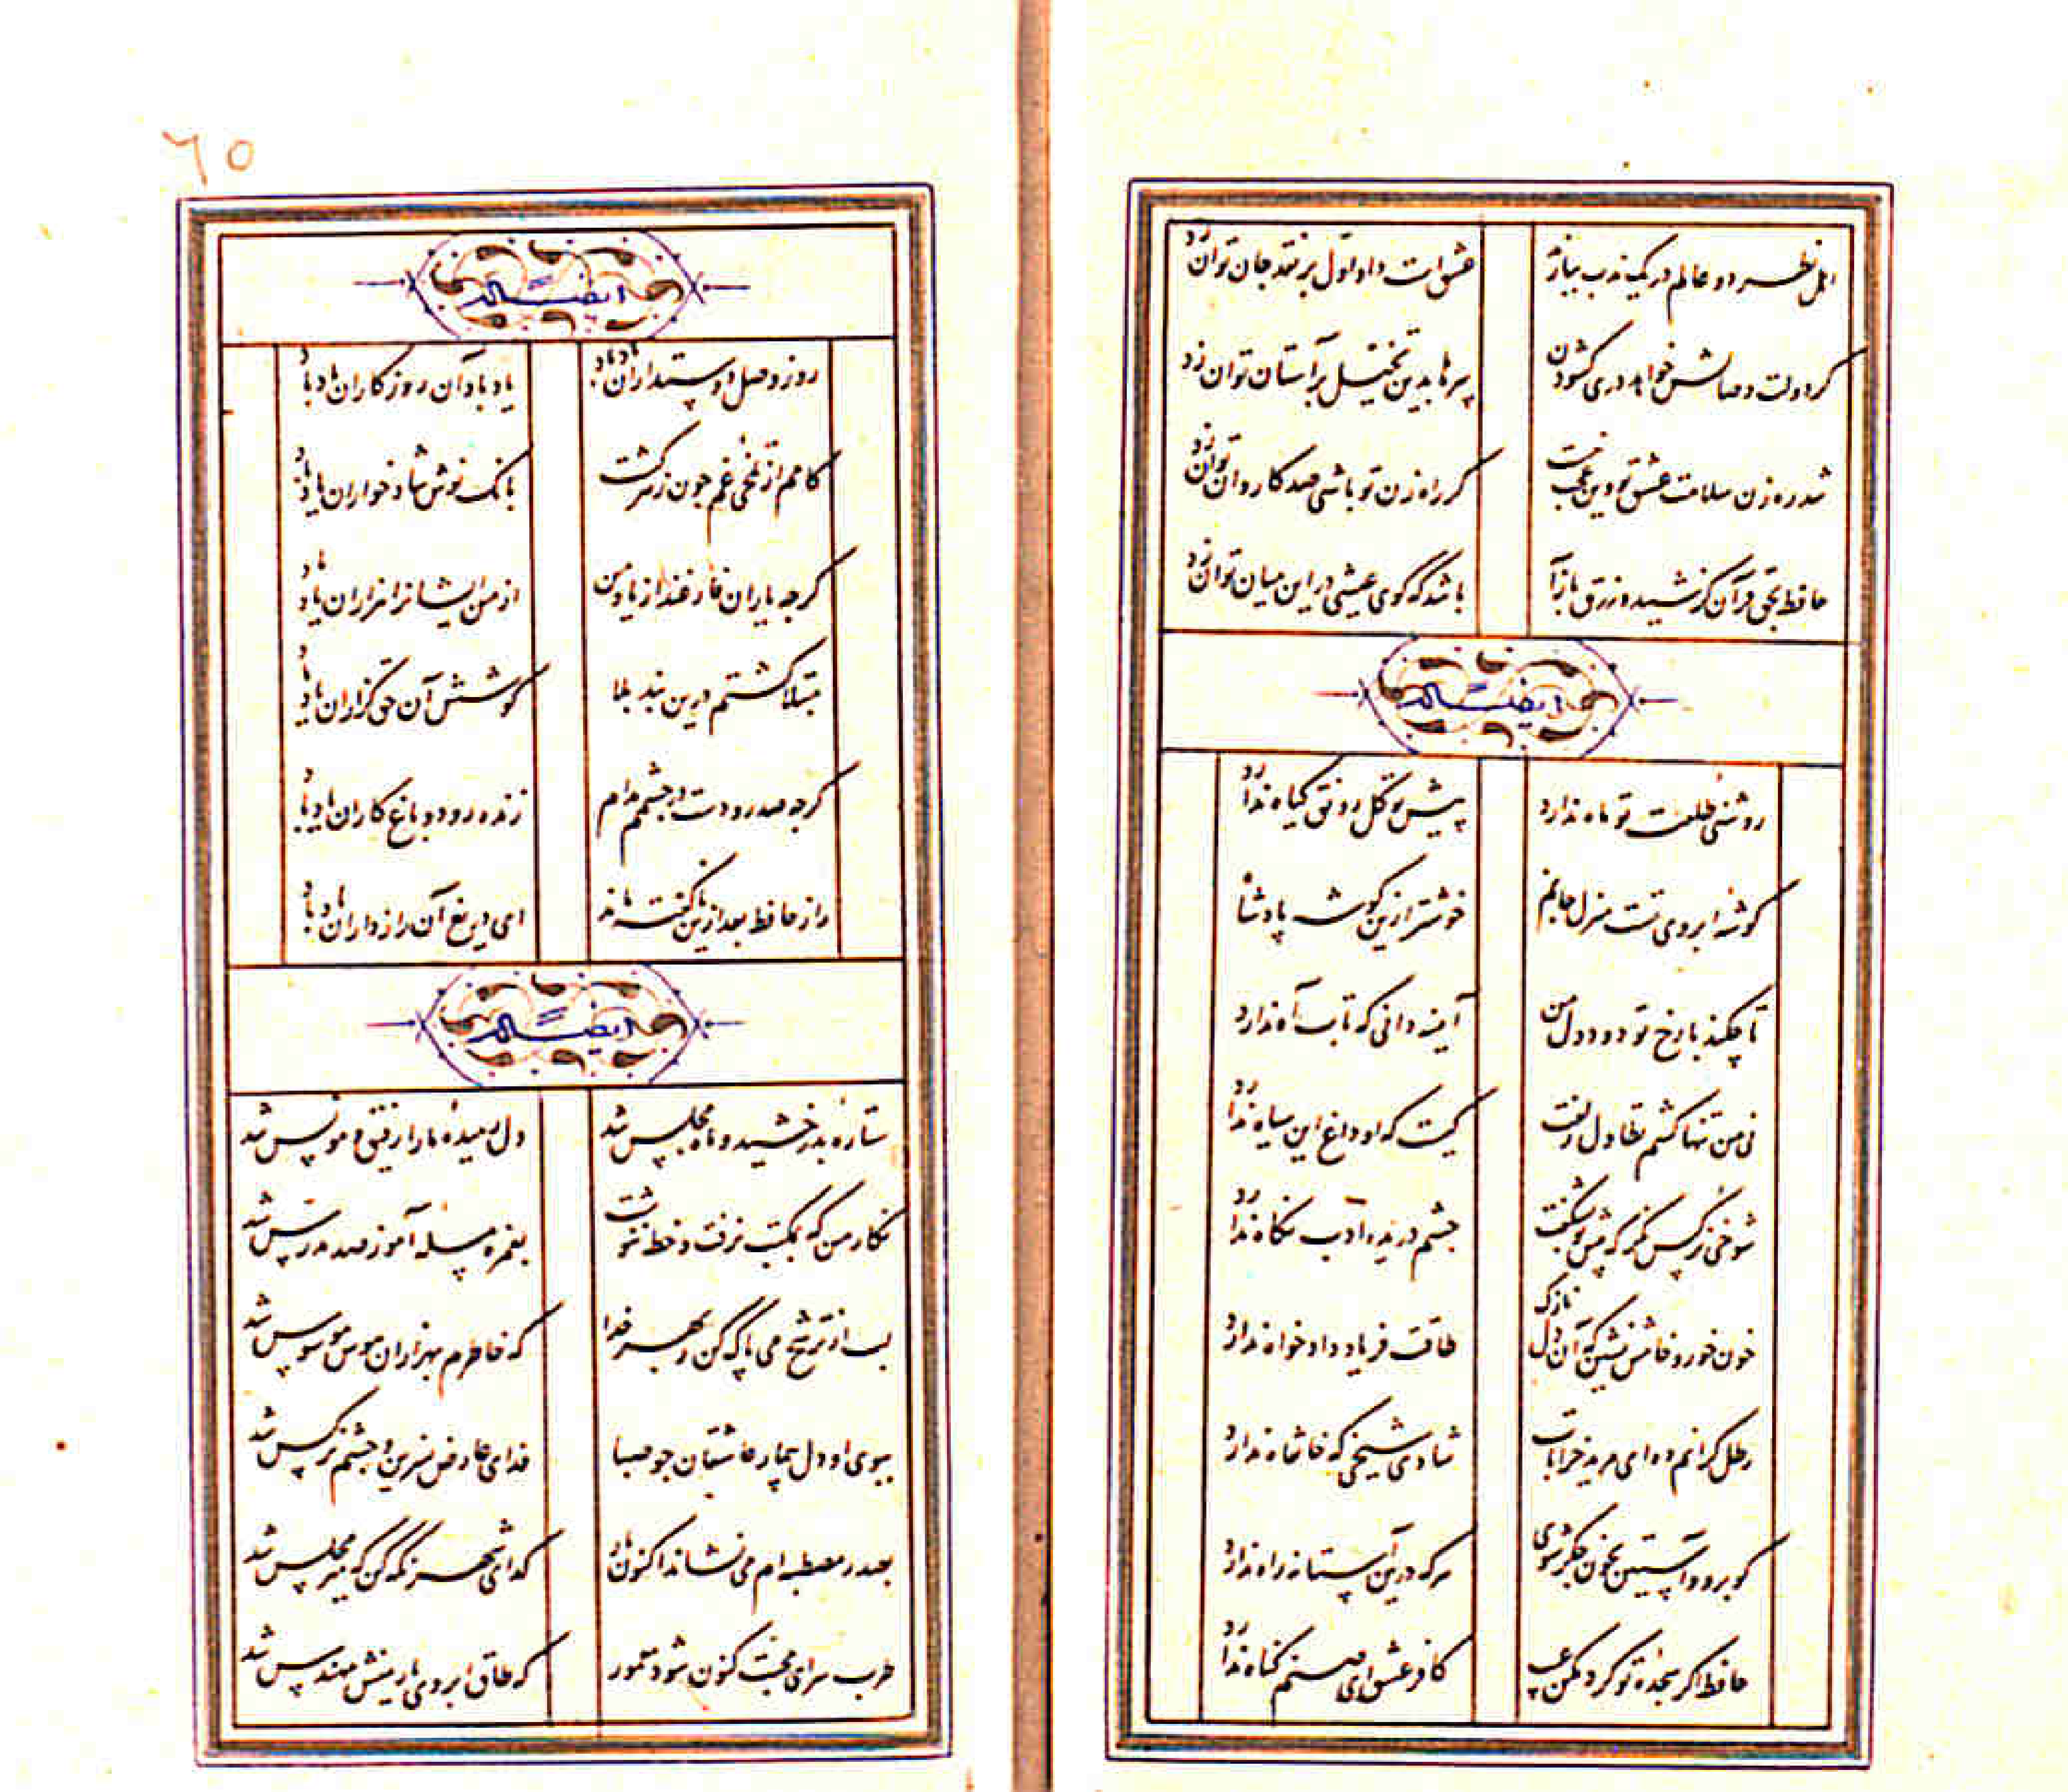 اهل نظر دو عالم در یک ندب ببازند عشق است و داو اول بر نقد جان توان زد
کر دولت وصالش خواهد دری کشودن سرها بدین تخیل بر آستان توان زد
شد ره زن سلامت عشق تو وین عجب نیست کر راه زن تو باشی صد کاروان توان زد
حافظ بحق قرآن کز شید و زرق بازآ باشد که کوی عیشی در این میان توان زد
ایضاً له
روشنی طلعت تو ماه ندارد پیش تو کل رونق کیاه ندارد
کوشه ابروی تست منزل جانم خوشتر ازین کوشه پادشاه
تا چکند با رخ تو دود دل من آینه دانی که تاب آه ندارد
نی من تنها کشم تطاول زلفت کیست که او داغ این سیاه ندارد
شوخی نرکس نکر که پیش تو بشکفت چشم دریده ادب نکاه ندارد
خون خور و خامش نشین که آن دل نازک طاقت فریاد دادخواه ندارد
رطل کرانم ده ای مرید خرابات شادی شیخی که خانقاه ندارد
کو برو و آستین بخون جکر شوی هر که درین آستانه راه ندارد
حافظ اکر سجده تو کرد مکن عیب کافر عشق ای صنم کناه ندارد
٦٥
ایضاً له
روز وصل دوستداران یاد باد یاد باد آن روزکاران یاد باد
کامم از تلخی غم چون زهر کشت بانک نوش شادخواران یاد باد
کرچه یاران فارغند از یاد من از من ایشانرا هزاران یاد باد
مبتلا کشتم درین بند بلا کوشش آن حق کزاران یاد باد
کرچه صد رودست در چشمم مدام زنده رود و باغ کاران یاد باد
راز حافظ بعد ازین ناکفته ماند ای دریغ آن رازداران یاد باد
ایضاً له
ستاره بدرخشید و ماه مجلس شد دل رمیده ما را رفیق و مونس شد
نکار من که بمکتب نرفت و خط ننوشت بغمزه مسئله آموز صد مدرس شد
لب از ترشح می پاک کن ز بهر خدا که خاطرم بهزاران هوس موسوس شد
ببوی او دل بیمار عاشقان چو صبا فدای عارض نسرین و چشم نرکس شد
بصدر مصطبه ام می نشاند اکنون یار کدای شهر نکه کن که میر مجلس شد
طرب سرای محبت کنون شود معمور که طاق ابروی یار منش مهندس شد